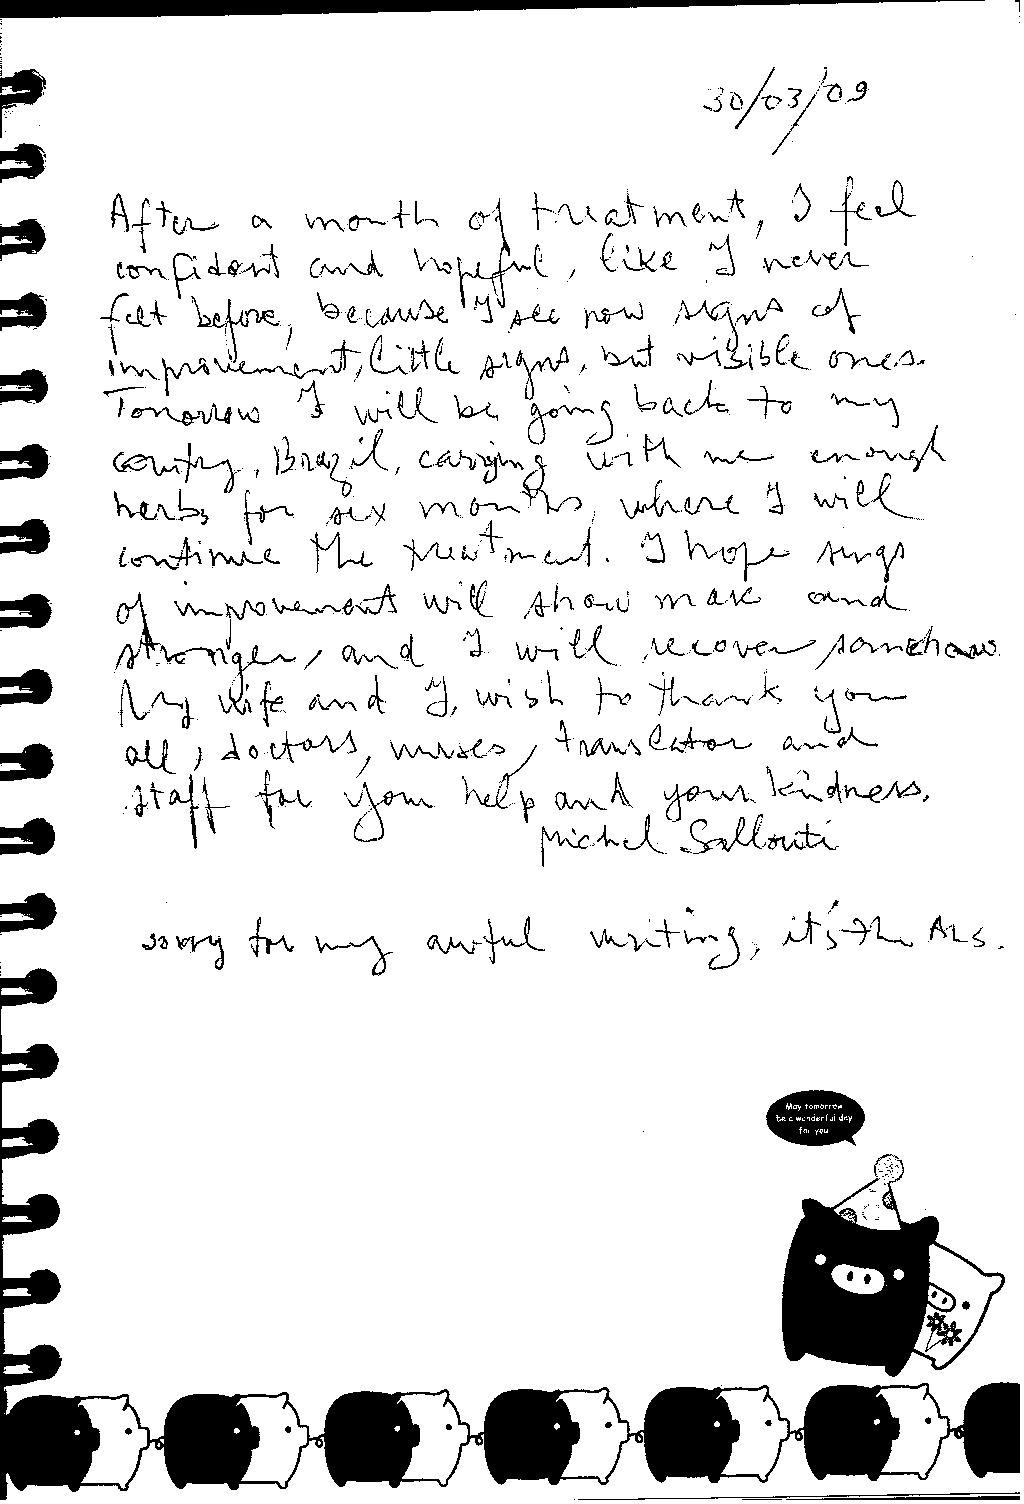 30/03/09
After a month of treatment, I feel
confident and hopeful, like I never
felt before, because I see now signs of
improvement, little signs, but visible ones.
Tomorrow I will be going back to my
country, Brazil, carrying with me enough
herbs for six months, where I will
continue the treatment. I hope sings
of improvement will show more and
stronger, and I will recover somehow.
My wife and I, wish to thank you
all, doctors, nurses, translator and
staff for your help and your kindness.
Michel Sallouti
sorry for my awful writing, it's the ALS.
May tomorrow
be a wonderful day
for you